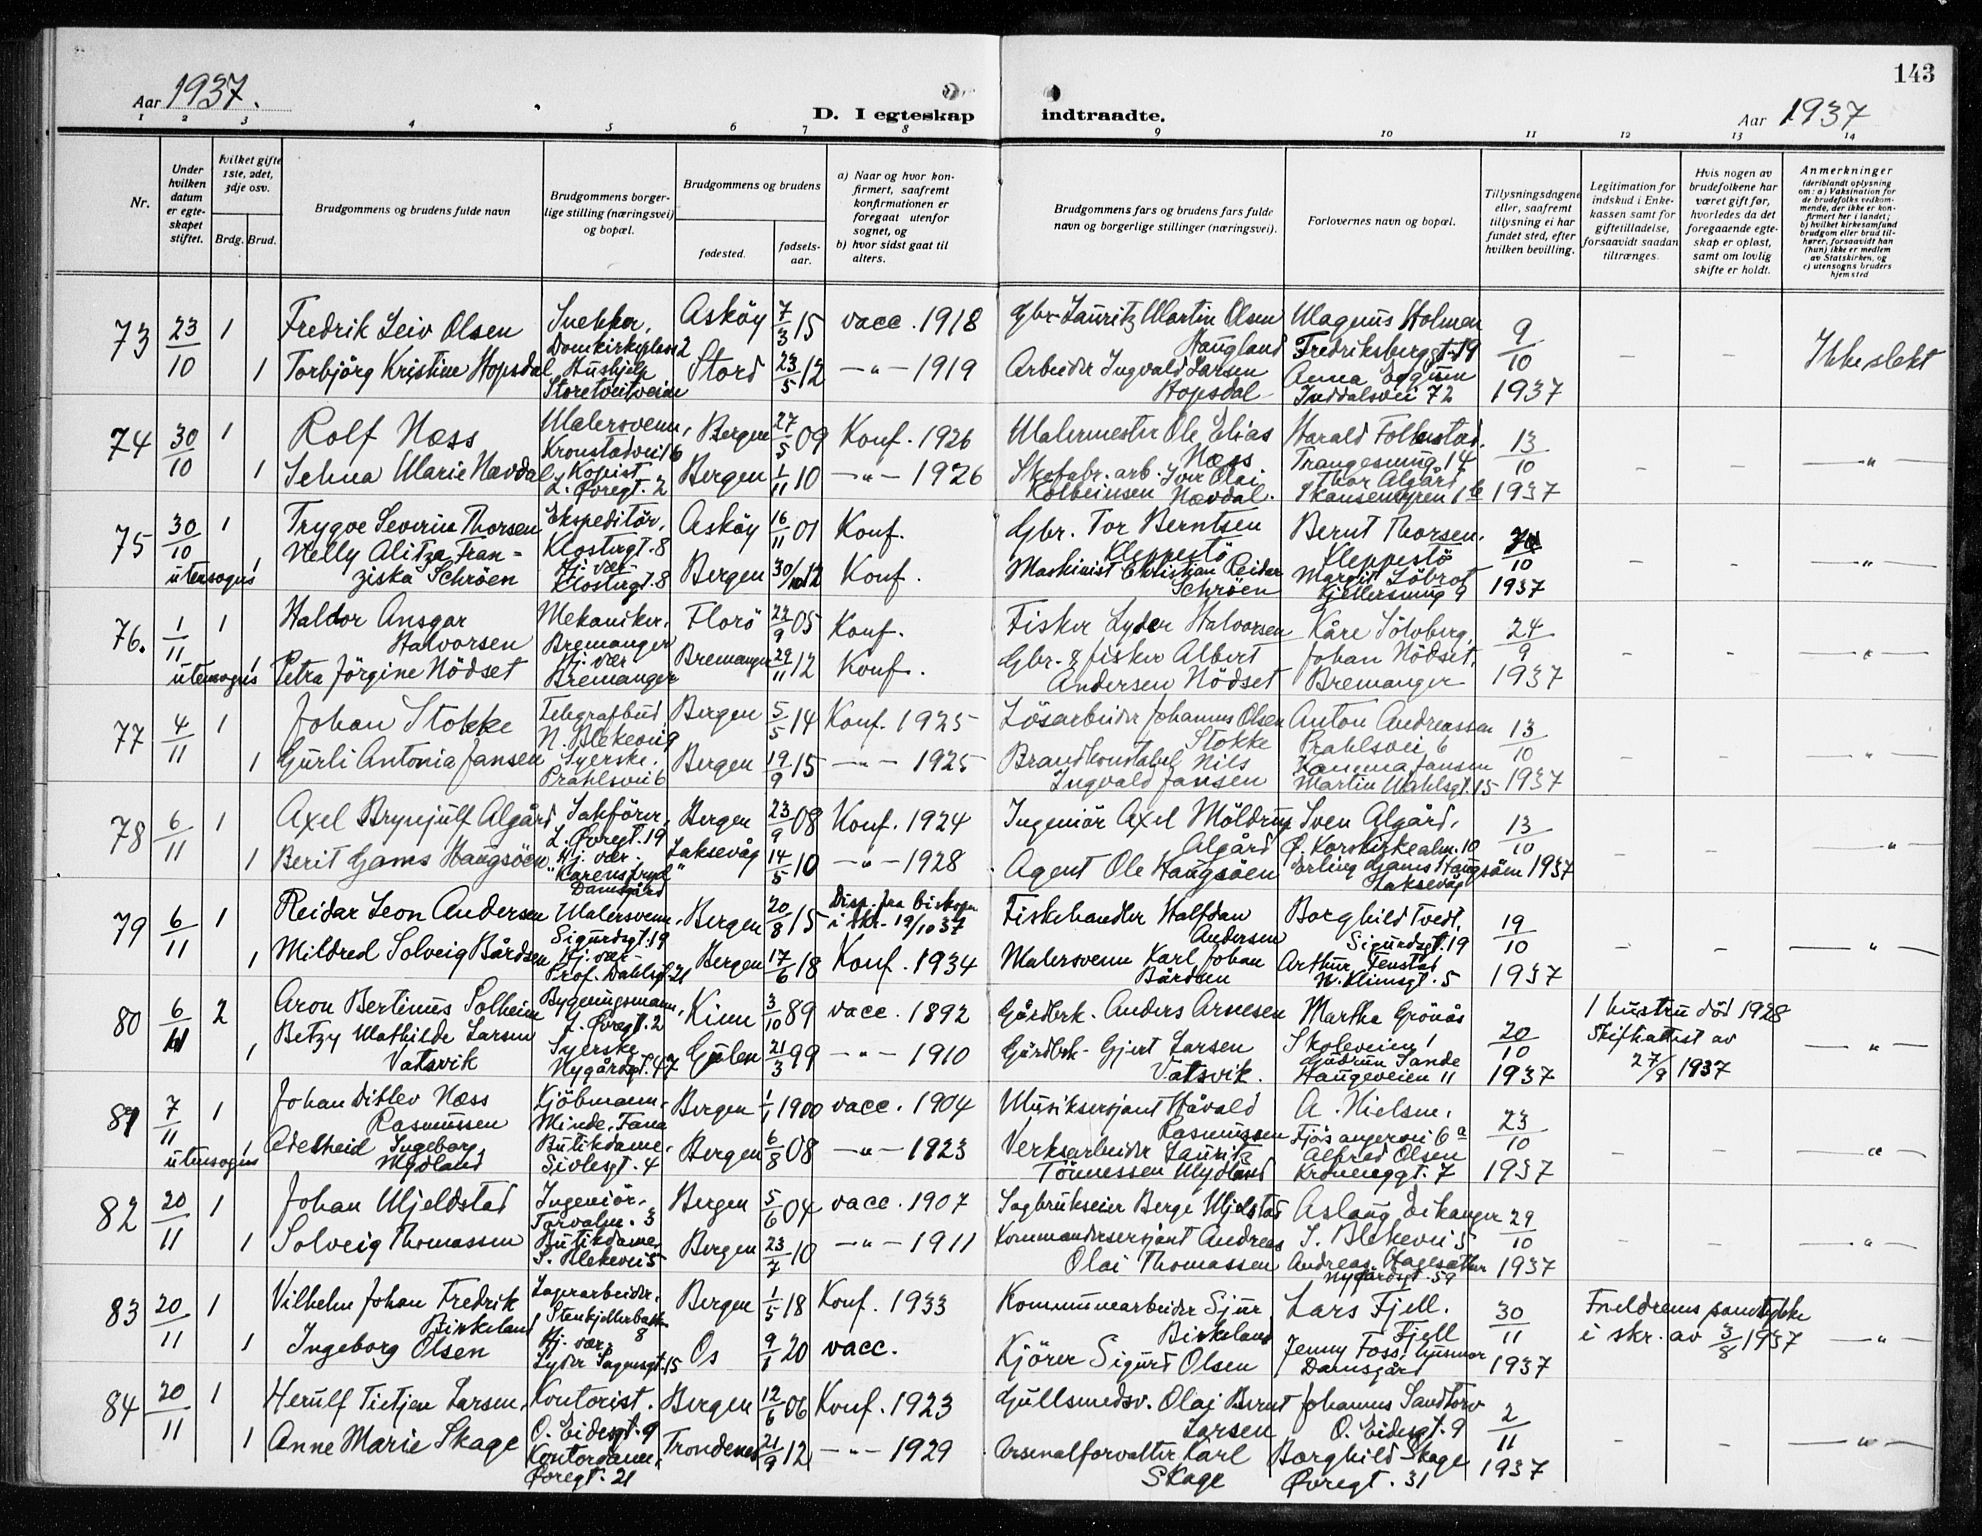 143
Aar 1937.
D. I egteskap indtraadte.
Aar 1937
1 2 3 4 5 6 7 8 9 10 11 12 13 14
Nr.
Under hvilken datum er egteskapet stiftet.
Hvilket gifte 1ste, 2det, 3dje osv.
Brdg. Brud.
Brudgommens og brudens fulde navn
Brudgommens borgerlige stilling (næringsvei) og bopæl.
Brudgommens og brudens
fødested.
fødselsaar.
a) Naar og hvor konfirmert, saafremt konfirmationen er foregaat utenfor sognet, og
b) hvor sidst gaat til alters.
Brudgommens fars og brudens fars fulde navn og borgerlige stillinger (næringsvei).
Forlovernes navn og bopæl.
Tillysningsdagene eller, saafremt tillysning ei har fundet sted, efter hvilken bevilling.
Legitimation for indskud i Enkekassen samt for giftetilladelse, forsaavidt saadan tiltrænges.
Hvis nogen av brudefolkene har været gift før, hvorledes da det foregaaende egteskap er opløst, samt om lovlig skifte er holdt.
Anmerkninger
(deriblandt oplysning om: a) Vaksination for de brudefolks vedkommende, der ikke er konfirmert her i landet; b) hvilket kirkesamfund brudgom eller brud tilhører, forsaavidt han (hun) ikke er medlem av Statskirken, og c) utensogns bruders hjemsted
73 23/10 1 Fredrik Leiv Olsen Snekker, Domkirkeplass 2 Askøy 7/3 15 vacc. 1918 Gbr. Lauritz Martin Olsen Haugland Magnus Holmen Fredriksbergsgt. 19 9/10 1937 – – Ikke slekt
1 Torbjörg Kristine Hopsdal Hushjelp Storetveitveien Stord 23/5 12 –"– 1919 Arbeider Ingvald Larsen Hopsdal Anna Eggum Inddalsvei 72
74 30/10 1 Rolf Næss Malersvenn, Kronstadvei 16 Bergen 27/5 09 Konf. 1926 Malermester Ole Elias Næss Harald Folkestad. Trangesmug 14 13/10 1937 – – –"–
1 Selma Marie Nævdal Kopist L. Øvregt. 2 Bergen 1/11 10 –"– 1926 Skofabr. arb. Iver Olai Kolbeinsen Nævdal. Thor Algård Skansemyren 1b
75 30/10 utensogns 1 Trygve Severin Thorsen Ekspeditör, Klostergt. 8 Askøy 16/11 01 Konf. Gbr. Tor Berntsen Kleppestö Bernt Thorsen. Kleppestö /10 1937 – – –"–
1 Nelly Alitza Franziska Schröen Hj. vær. Klostergt. 8 Bergen 30/10 12 Konf. Maskinist Christian Reidar Schröen Margit Löbrot Kjellersmug 9
76. 1/11 utensogns 1 Haldor Ansgar Halvorsen Mekaniker, Bremanger Florö 22/9 05 Konf. Fisker Lyder Halvorsen Kåre Sölvberg, 24/9 1937 – – –"–
1 Petra Jörgine Nödset Hj. vær Bremanger Bremanger 29/11 12 Konf. Gbr. & fisker Albert Andersen Nödset Johan Nödset, Bremanger
77 4/11 1 Johan Stokke Telegrafbud N. Blekevei 9 Bergen 5/5 14 Konf. 1925 Lösarbeider Johannes Olsen Stokke Anton Andreassen Prahlsvei 6 13/10 1937 – – –"–
1 Gurli Antonia Jansen Syerske. Prahlsvei 6 Bergen 19/9 15 –"– 1925 Brandkonstabel Nils Ingvald Jansen Jansen Martin Wahlsgt. 15
78 6/11 1 Axel Brynjulf Algård Sakförer, L. Øvregt. 19 Bergen 23/9 08 Konf. 1924 Ingeniör Axel Möldrup Algård Sven Algård, Ø. Korskirkealm. 10 13/10 1937 – – –"–
1 Berit Gams Haugsöen Hj. vær. "Karensfryd" Damsgård Laksevåg 14/5 10 –"– 1928 Agent Ole Haugsöen Erling Gams Haugsöen Laksevåg
79 6/11 1 Reidar Leon Andersen Malersvenn, Sigurdsgt. 19 Bergen 20/8 15 Disp. fra biskopen i skr. 19/10 37 Fiskehandler Halfdan Andersen Borghild Tvedt, Sigurdsgt. 19 19/10 1937 – – –"–
1 Mildred Solveig Bårdsen Hj. vær Prof. Dahlsgt. 21 Bergen 17/6 18 Konf. 1934 Malersvenn Karl Johan Bårdsen Arthur Fenstad N. Klimsgt. 5
80 6/11 2 Aron Bertinus Solheim Bygningsmann, L. Øvregt. 2 Kinn 3/10 89 vacc. 1892 Gårdbrk. Anders Arnesen Martha Grönås Skoleveien 1 20/10 1937 1 hustru död 1928 Skifteattest av 27/9 1937 –"–
1 Betzy Mathilde Larsen Vatsvik Syerske Nygårdsgt. 47 Gulen 21/3 99 –"– 1910 Gårdbrk. Gjert Larsen Vatsvik. Gudrun Sande Haugeveien 11
81 7/11 utensogns 1 Johan Ditlev Næss Rasmussen Kjöbmann, Minde, Fana Bergen 1/1 1900 vacc. 1904 Musiksersjant Håvald Rasmussen A. Nielsen, Fjösangervei 6a 23/10 1937 – – –"–
1 Adelheid Ingeborg Mydland Butikdame, Sivlesgt. 4 Bergen 6/8 08 –"– 1923 Verksarbeider Laurits Tönnessen Mydland Alfred Olsen Kroneneggt. 7
82 20/11 1 Johan Mjeldstad Ingeniör, Torvalm. 3 Bergen 5/6 04 vacc. 1907 Sagbrukseier Berge Mjelstad Aslaug Eikanger S. Blekevei 5 29/10 1937 – – –"–
1 Solveig Thomassen Butikdame, S. Blekevei 5 Bergen 23/7 10 –"– 1911 Kommandersersjant Andreas Olai Thomassen Andreas Hagesæther Nygårdsgt. 59
83 20/11 1 Vilhelm Johan Fredrik Birkeland Lagerarbeider, Stenkjellerbakk. 8 Bergen 1/5 18 Konf. 1933 Kommunearbeider Sjur Birkeland Lars Fjell. Fjell 30/11 1937 Foreldrenes samtykke i skr. av 3/8 1937 –"–
1 Ingeborg Olsen Hj. vær, Lyder Sagensgt. 15 Os 9/1 20 vacc. Kjörer Sigurd Olsen Jenny Foss, husmor Damsgård
84 20/11 1 Herulf Tietjen Larsen, Kontorist. O. Eidesgt. 9 Bergen 12/6 06 Konf. 1923 Gullsmedsv. Olai Bernt Larsen Johannes Sandtorv O. Eidesgt. 9 2/11 1937 – – –"–
1 Anne Marie Skage Kontordame, Øvregt. 21 Trondenes 21/9 12 –"– 1929 Arsenalforvalter Karl Skage Borghild Skage Øvregt. 31